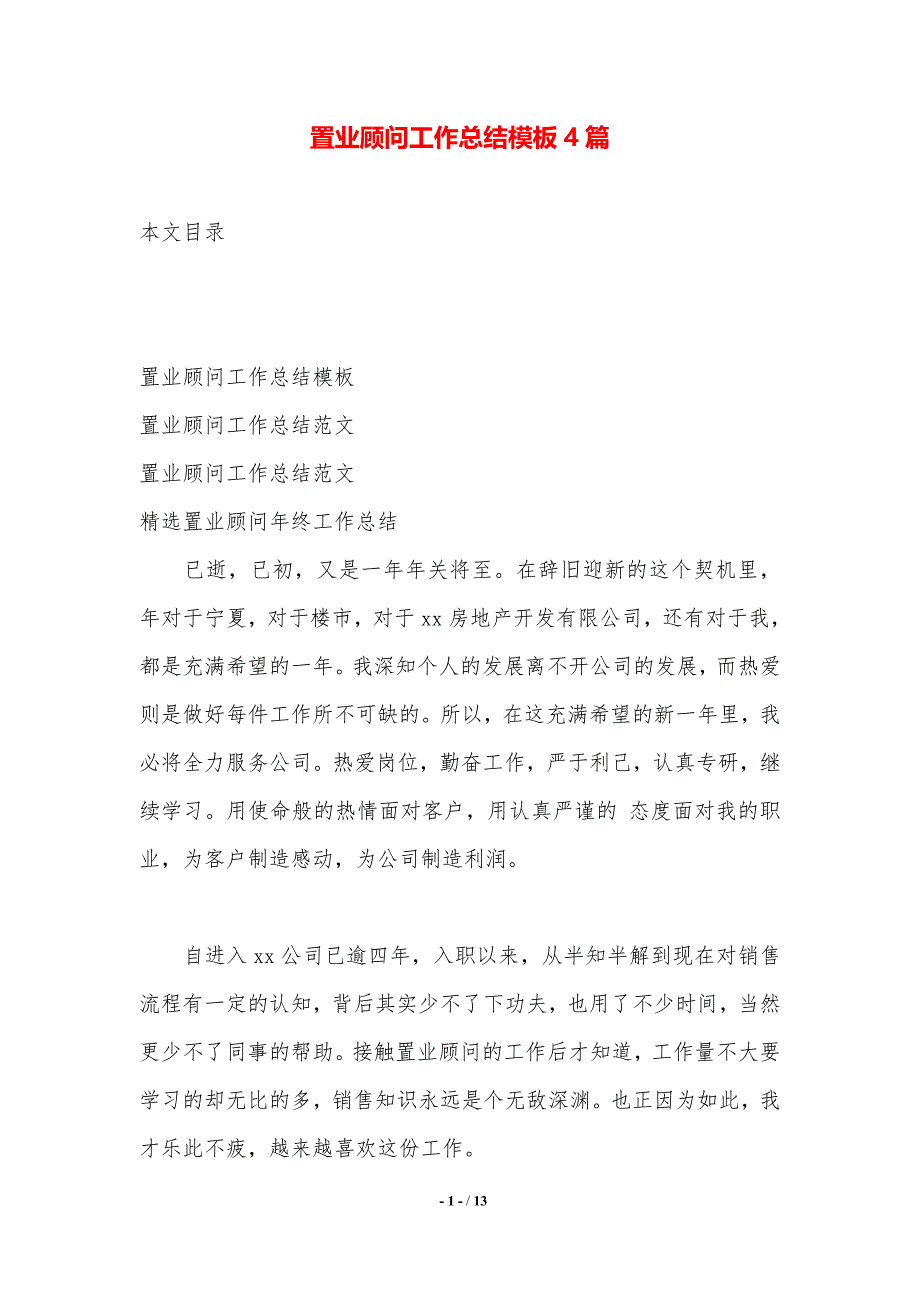 置业顾问工作总结模板 4 篇
本文目录
置业顾问工作总结模板
置业顾问工作总结范文
置业顾问工作总结范文
精选置业顾问年终工作总结
已逝，已初，又是一年年关将至。在辞旧迎新的这个契机里，
年对于宁夏，对于楼市，对于 xx 房地产开发有限公司，还有对于我，
都是充满希望的一年。我深知个人的发展离不开公司的发展，而热爱
则是做好每件工作所不可缺的。所以，在这充满希望的新一年里，我
必将全力服务公司。热爱岗位，勤奋工作，严于利己，认真专研，继
续学习。用使命般的热情面对客户，用认真严谨的 态度面对我的职
业，为客户制造感动，为公司制造利润。
自进入 xx 公司已逾四年，入职以来，从半知半解到现在对销售
流程有一定的认知，背后其实少不了下功夫，也用了不少时间，当然
更少不了同事的帮助。接触置业顾问的工作后才知道，工作量不大要
学习的却无比的多，销售知识永远是个无敌深渊。也正因为如此，我
才乐此不疲，越来越喜欢这份工作。
- 1 - / 13